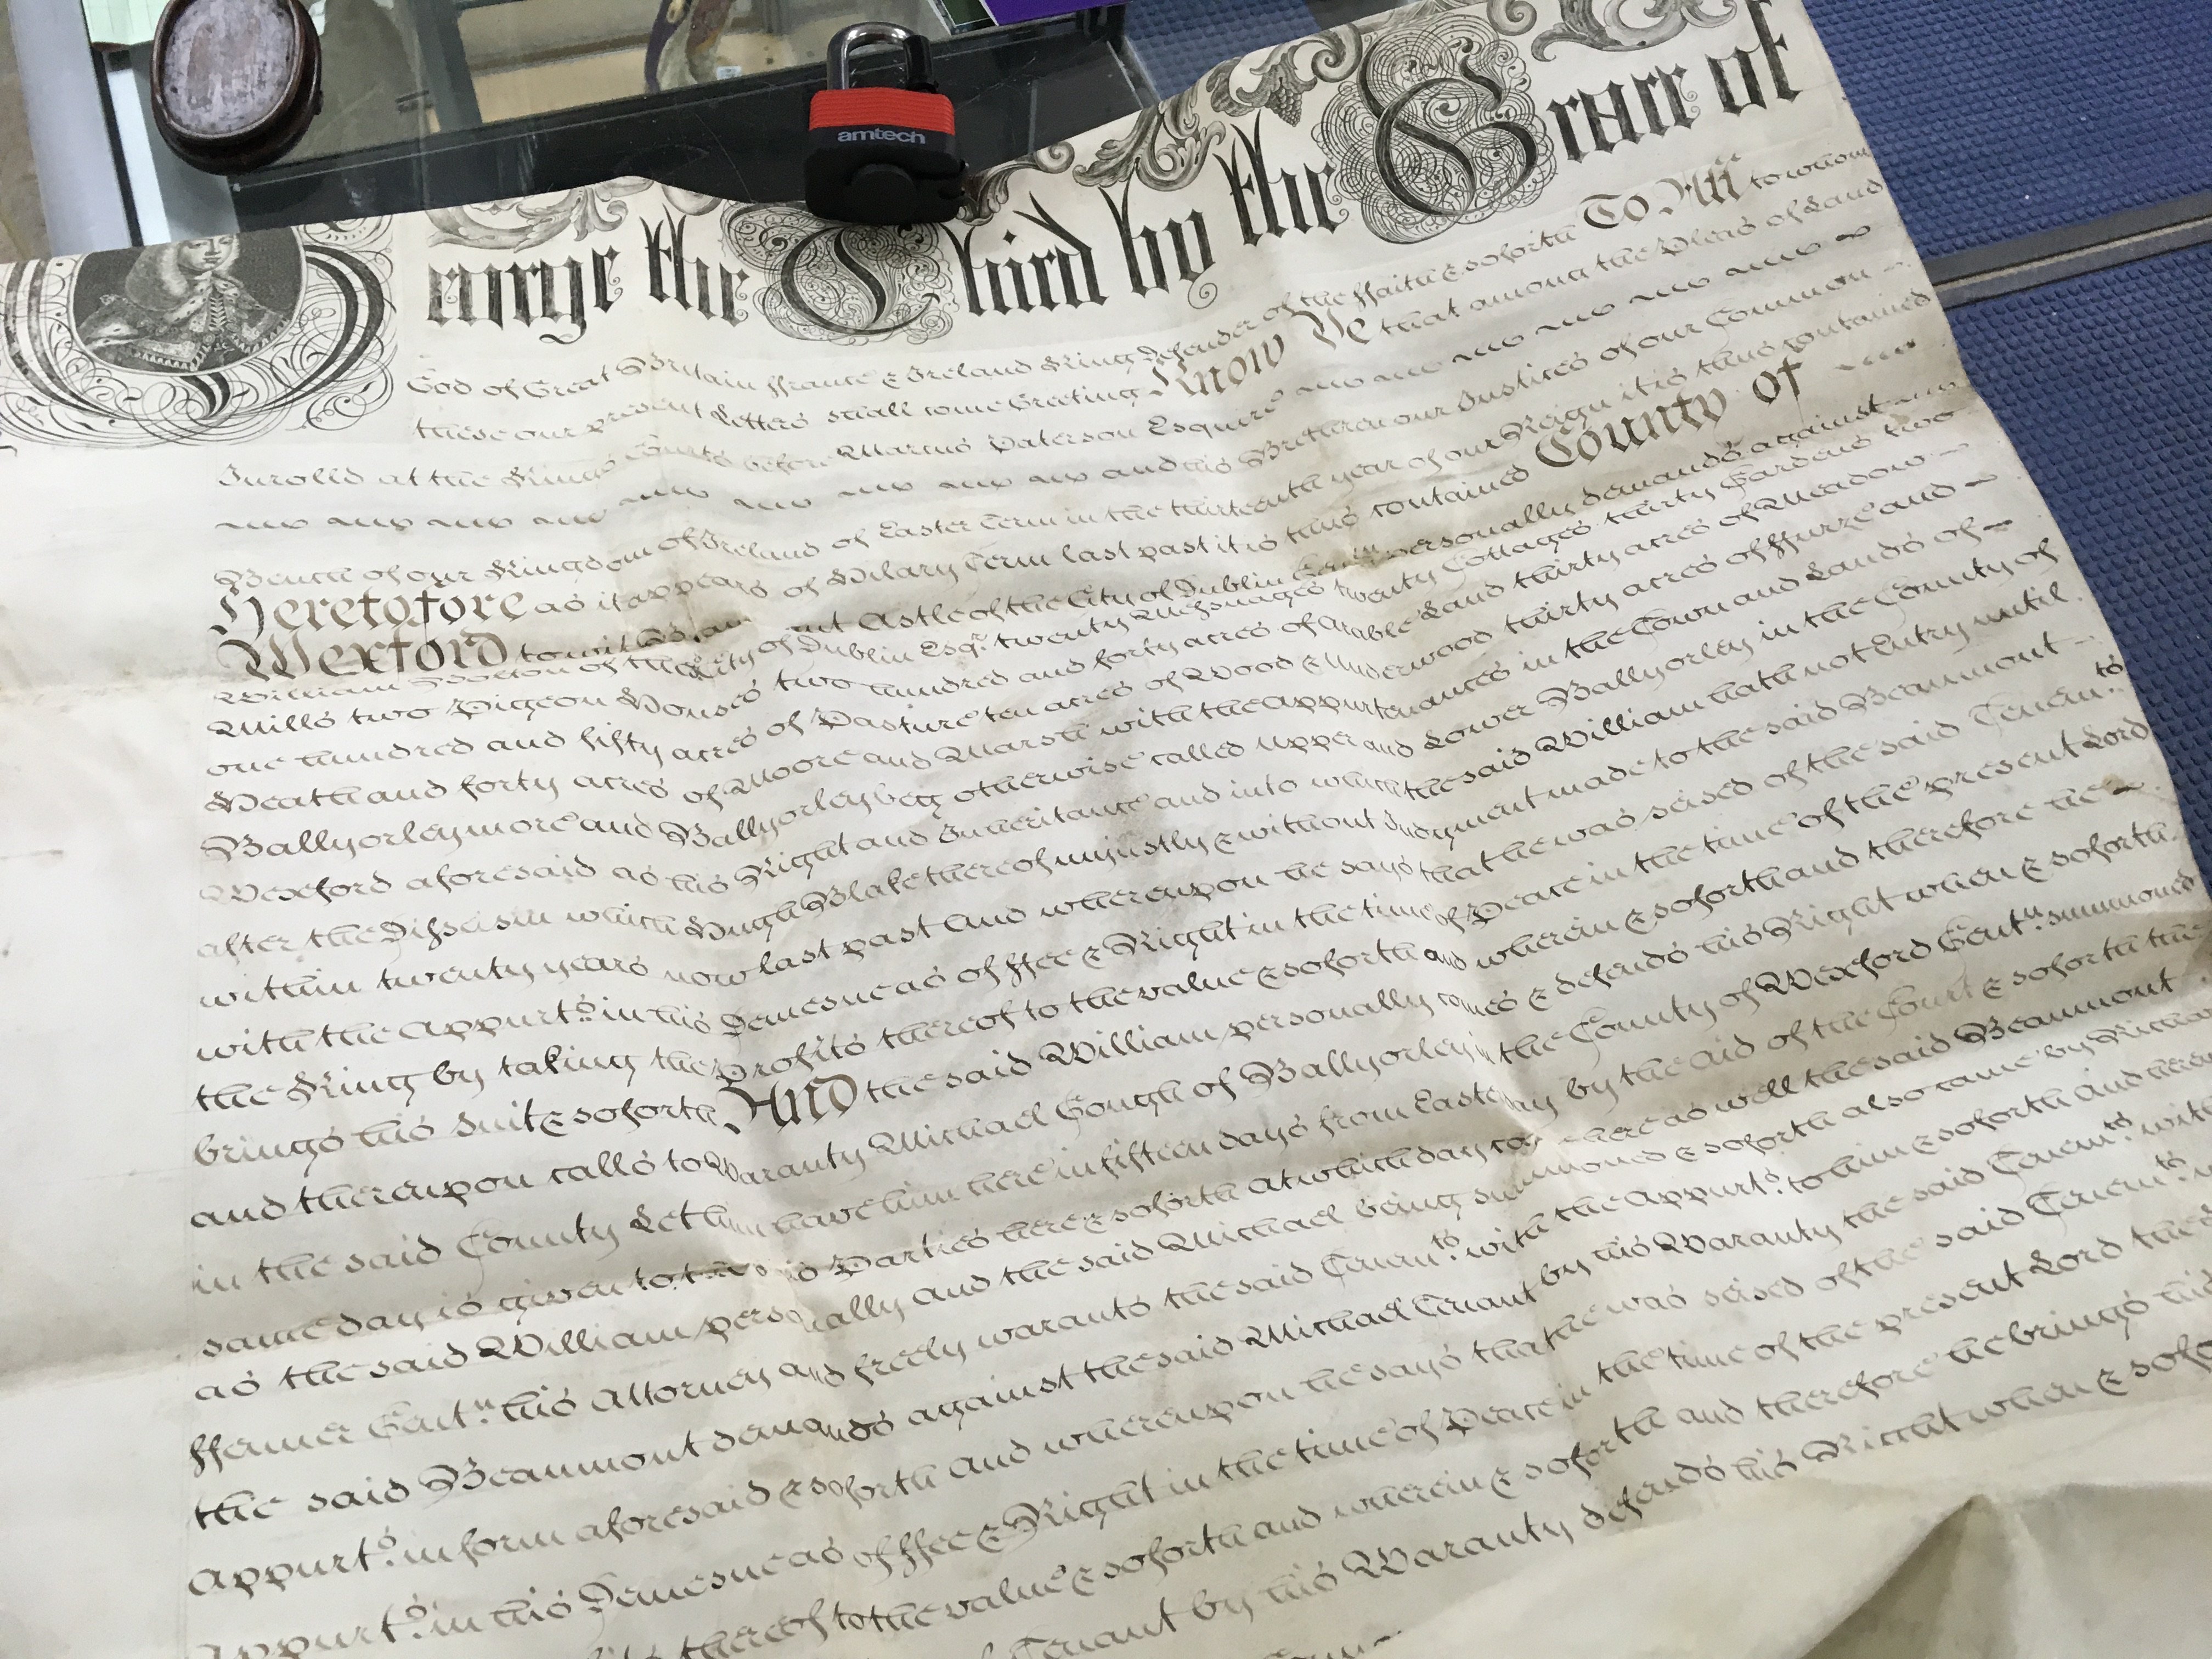 amtech
George the Third by the Grace of
God of Great Brittain ffrance & Ireland King Defender of the ffaith & soforth To All to whom
these our present Letters shall come Greeting Know Ye that among the Pleas of Land
Inrolled at the Kings Courts before Marcus Paterson Esquire
and his Brethren our Justices of our Common
Bench of our Kingdom of Ireland of Easter Term in the thirteenth year of our Reign it is thus contained
Heretofore as it appears of Hilary Term last past it is thus contained County of
Wexford to wit Astle of the City of Dublin personally demands against
William of the City of Dublin Esqr. twenty Messuages twenty Cottages thirty Gardens two
Mills two Pigeon Houses two hundred and forty acres of arable Land thirty acres of Meadow
one hundred and fifty acres of Pasture ten acres of Wood & Underwood thirty acres of ffurze and
Heath and forty acres of Moore and Marsh with the appurtenances in the Town and Lands of
Ballyorleymore and Ballyorleybeg otherwise called Upper and Lower Ballyorley in the County of
Wexford aforesaid as his Right and Inheritance and into which the said William hath not Entry until
after the Disseisin which Hugh Blake thereof unjustly & without Judgment made to the said Beaumont
within twenty years now last past And whereupon he says that he was seised of the said Tenemts
with the appurts. in his Demesne as of ffee & Right in the time of Peace in the time of the present Lord
the King by taking the Profits thereof to the value & soforth and wherein & soforth and therefore he
brings his Suit & soforth And the said William personally comes & defends his Right when & soforth
and thereupon calls to Waranty Michael Gough of Ballyorley in the County of Wexford Gentn. summoned
in the said County Let him have him here in fifteen days from Easter day by the aid of the Court & soforth the
same day is given to the Parties here & soforth at which day comes here as well the said Beaumont
as the said William personally and the said Michael being summoned & soforth also came by Richard
ffenner Gentn. his Attorney and freely warants the said Tenemts. with the appurts. to him & soforth And
the said Beaumont demands against the said Michael Tenant by his Waranty the said Tenemts. with
appurts. in form aforesaid & soforth and whereupon he says that he was seised of the said Tenemts.
appurts. in his Demesne as of ffee & Right in the time of Peace in the time of the present Lord the
thereof to the value & soforth and wherein & soforth and therefore he brings his
Tenant by his Waranty defends his Right when &